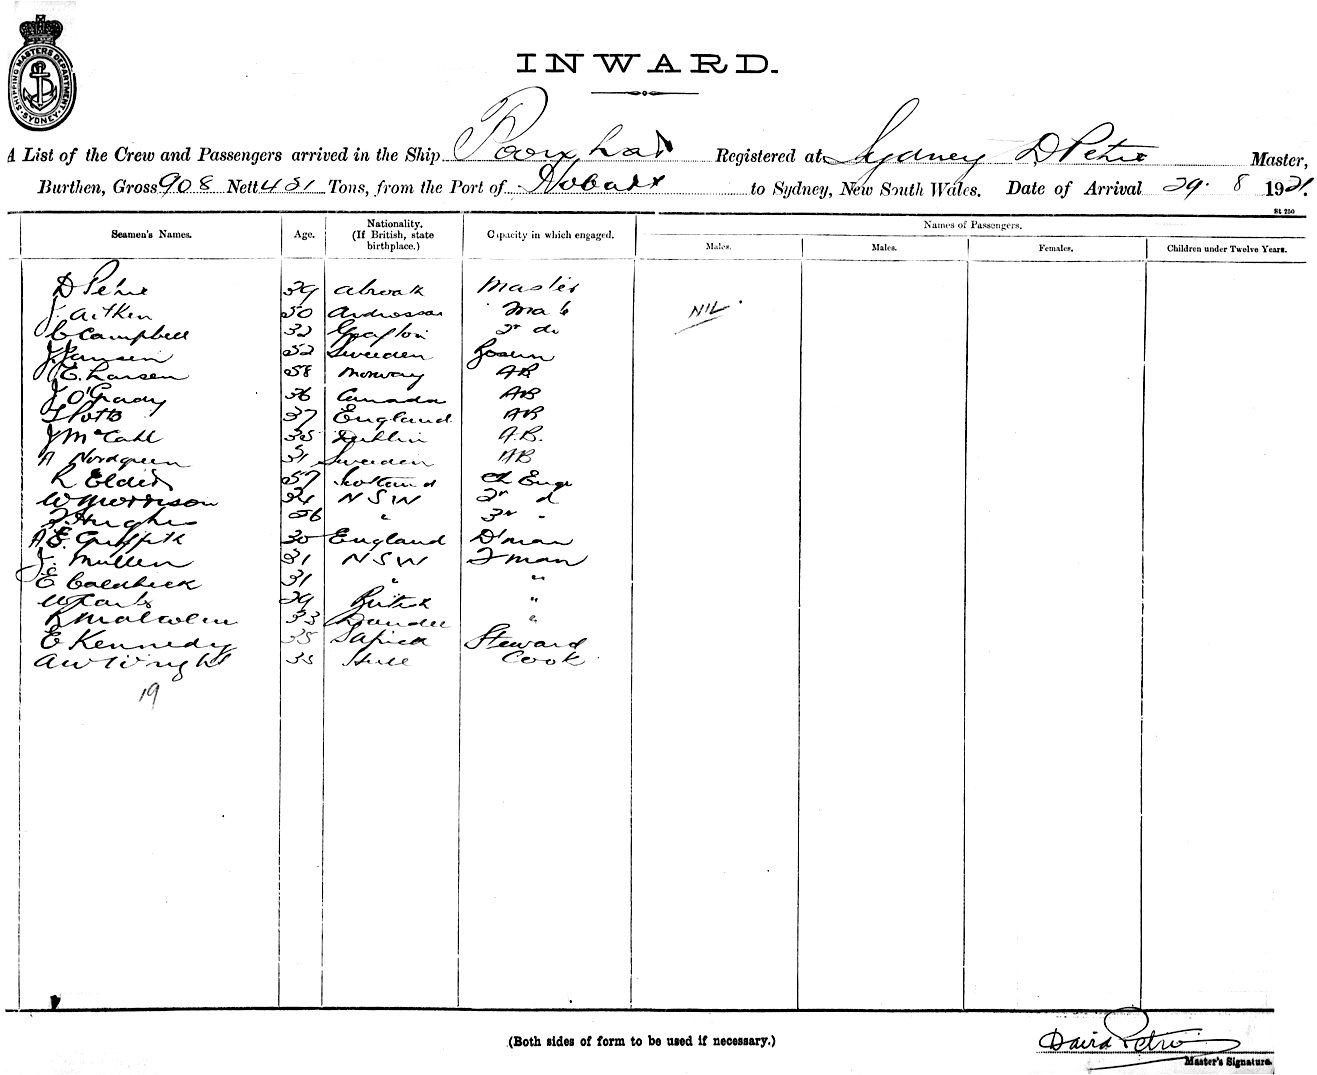 SHIPPING MASTERS DEPARTMENT SYDNEY
INWARD.
A List of the Crew and Passengers arrived in the Ship Registered at Sydney D Petrie Master,
Burthen, Gross 908 Nett 431 Tons, from the Port of Hobart to Sydney, New South Wales. Date of Arrival 29. 8 1921.
St 250
Seamen's Names. Age. Nationality. (If British, state birthplace.) Capacity in which engaged. Names of Passengers.
Males. Males. Females. Children under Twelve Years.
D Petrie 39 Master
J. Aitken 50 Ardrossan Mate
C Campbell 32 Grafton 2nd do
J Jansen 52 Sweden Bosun
E. Larsen 58 Norway AB
J O'Grady 36 Canada AB
T Potts 37 England AB
J McCahl 35 Dublin A.B.
A Nordgreen 31 Sweden AB
R Elder 57 Scotland Ch Engr
W Morrison 34 NSW 2nd d
Hughes 56 " 3rd "
A E. Griffith 30 England D'man
J. Mullen 31 NSW F man
E Caldbeck 31 " "
29 British "
R Malcolm 33 Dundee "
E Kennedy 35 Steward
A W Wright 35 Hull Cook
NIL.
19
(Both sides of form to be used if necessary.)
David Petrie
Master's Signature.